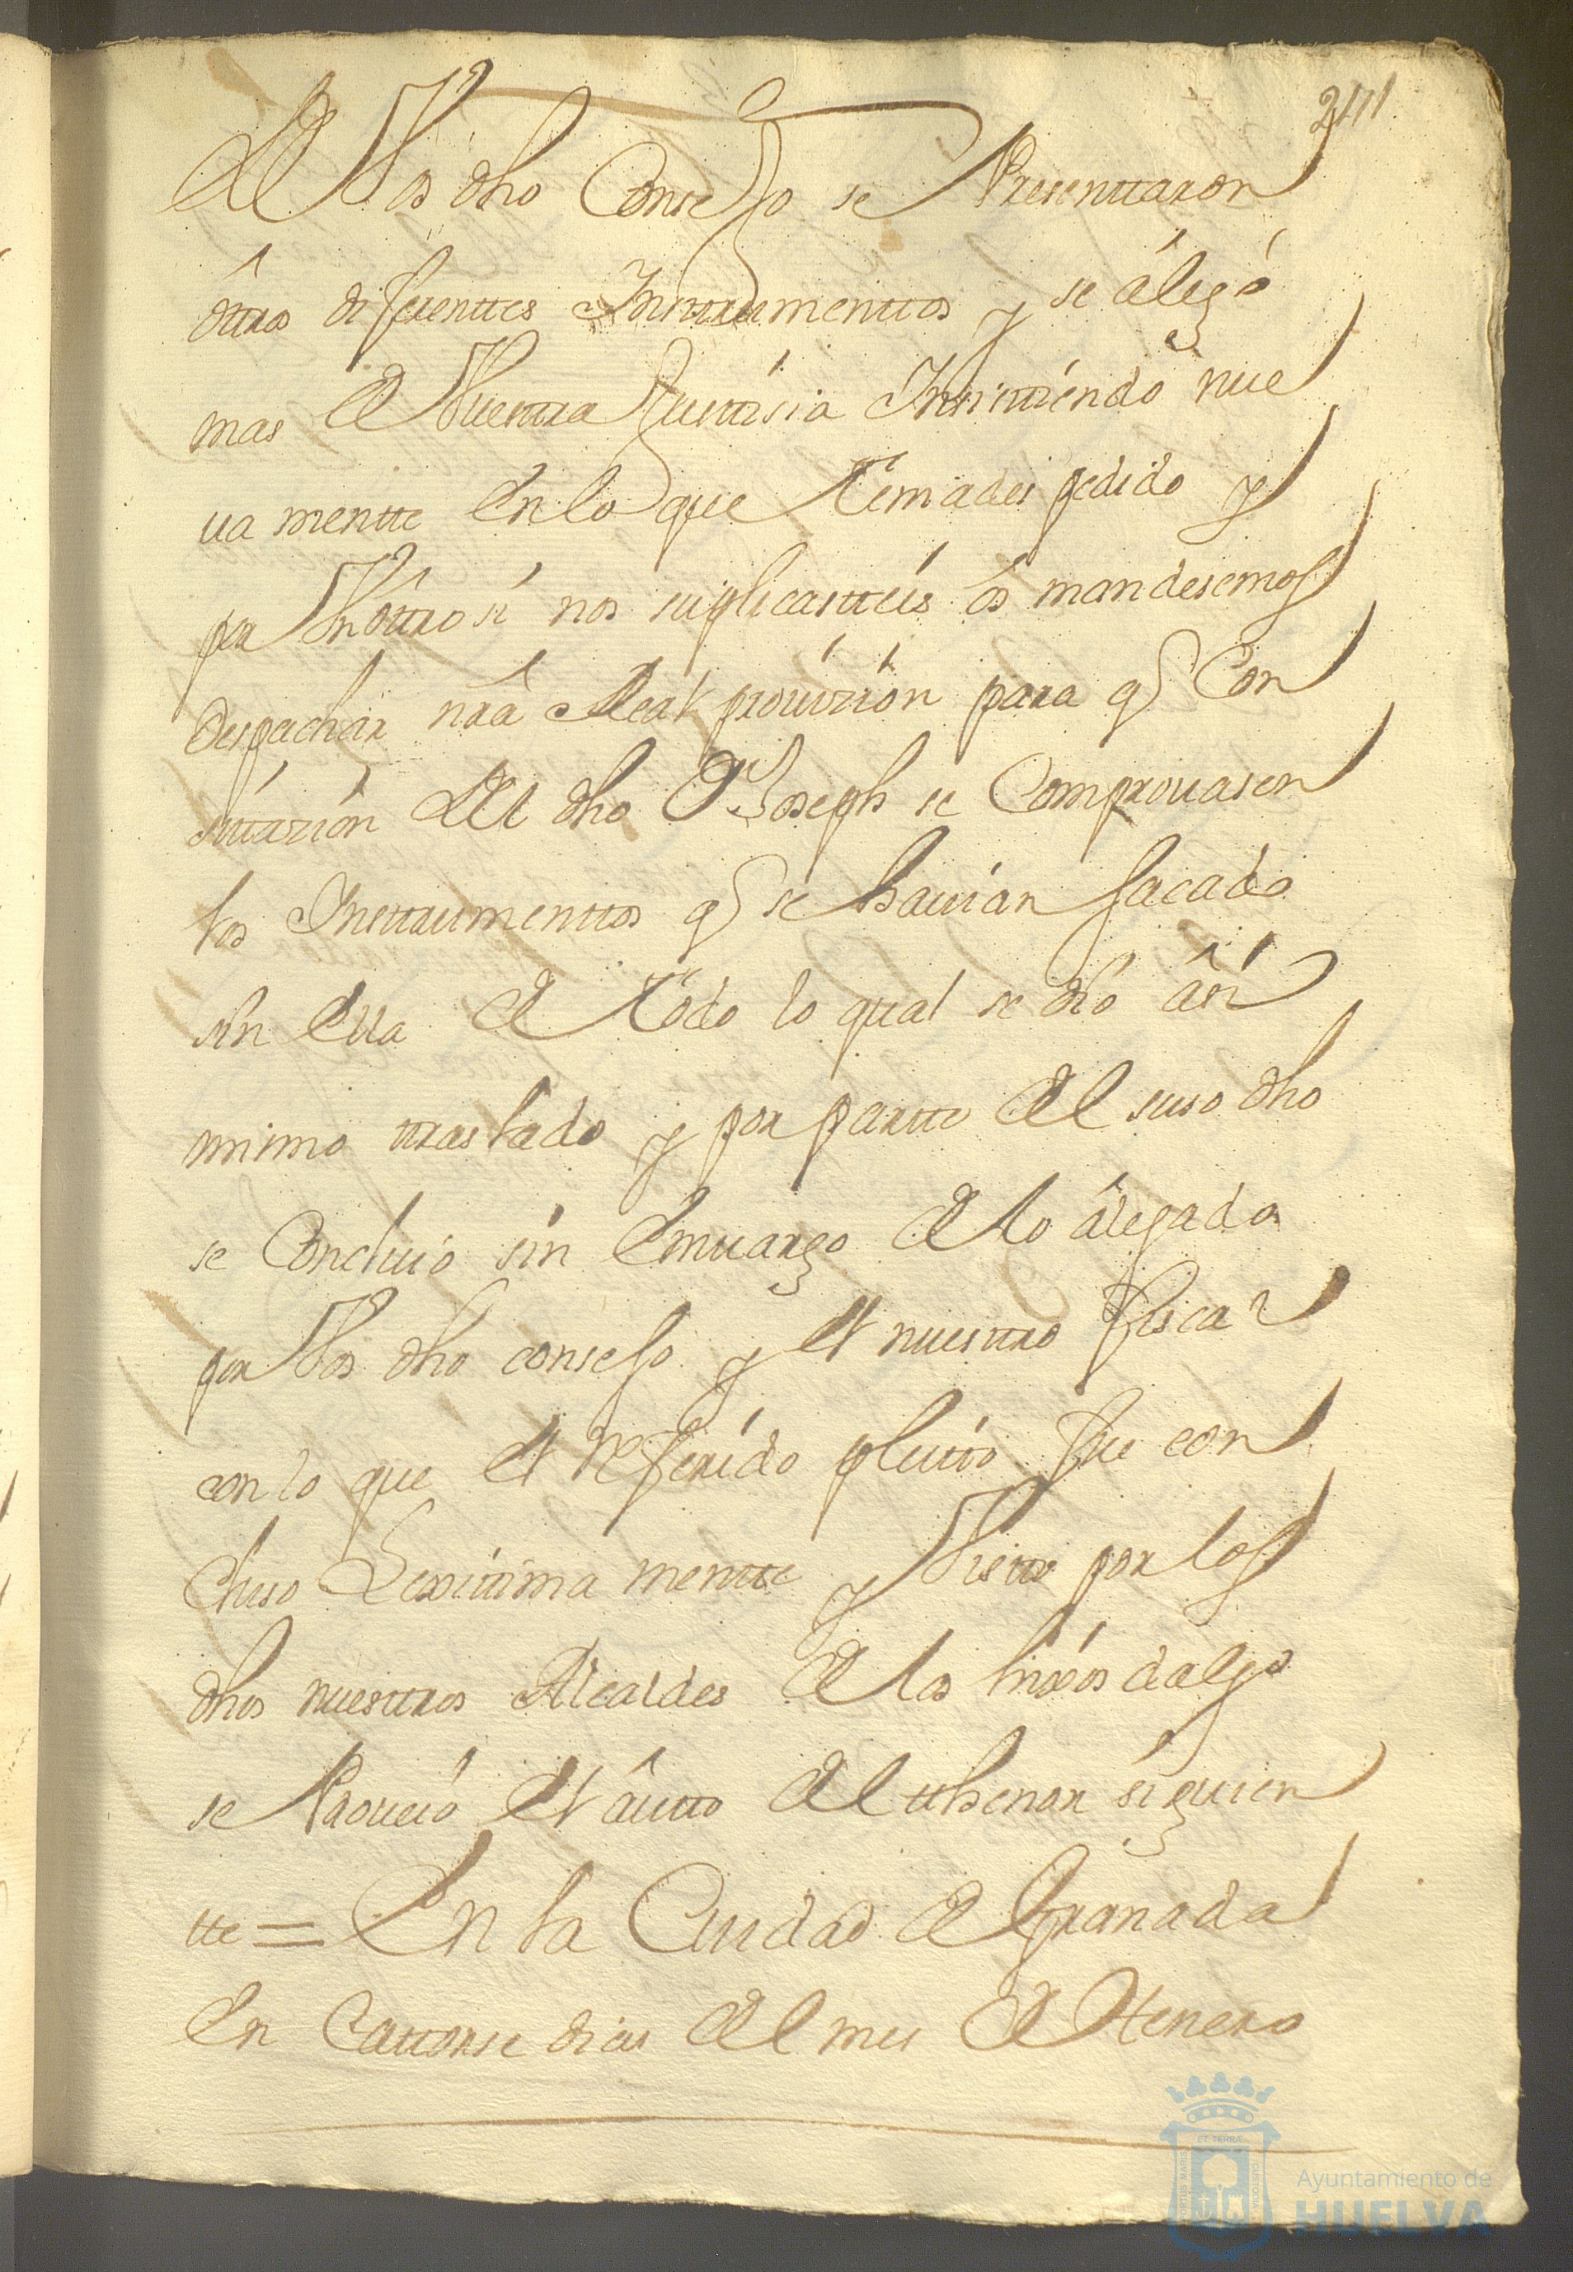 241
de Vos dho Consejo se Presenttaron
ôttros diferenttes Ynsttrumenttos y se álegó
mas de Vuesttra Justtisia Ynsisttiendo nue
ua mentte en lo que teniades pedido y
por Vn ôttro sí nos suplicastteis ós mandesemos
despachar nrâ Real prouizión para q Con
sittazión del dho Dn Joseph se Comprouasen
los Ynsttrumenttos q se hauian sacado
sin ella de todo lo qual se dió âsí
mismo ttraslado y por partte del suso dho
se Concluió sin Emuargo de lo álegado
por Vos dho consejo y el nuesttro fiscal
con lo que el referido pleitto fue con
cluso Lexittima mentte y Vistto por los
dhos nuesttros Alcaldes de los hixós dalgo
se Proueió el âutto del tthenor siguien
tte = En la Ciudad de Granada
en Cattorse dias del mes de Henero
Ayuntamiento de
HUELVA